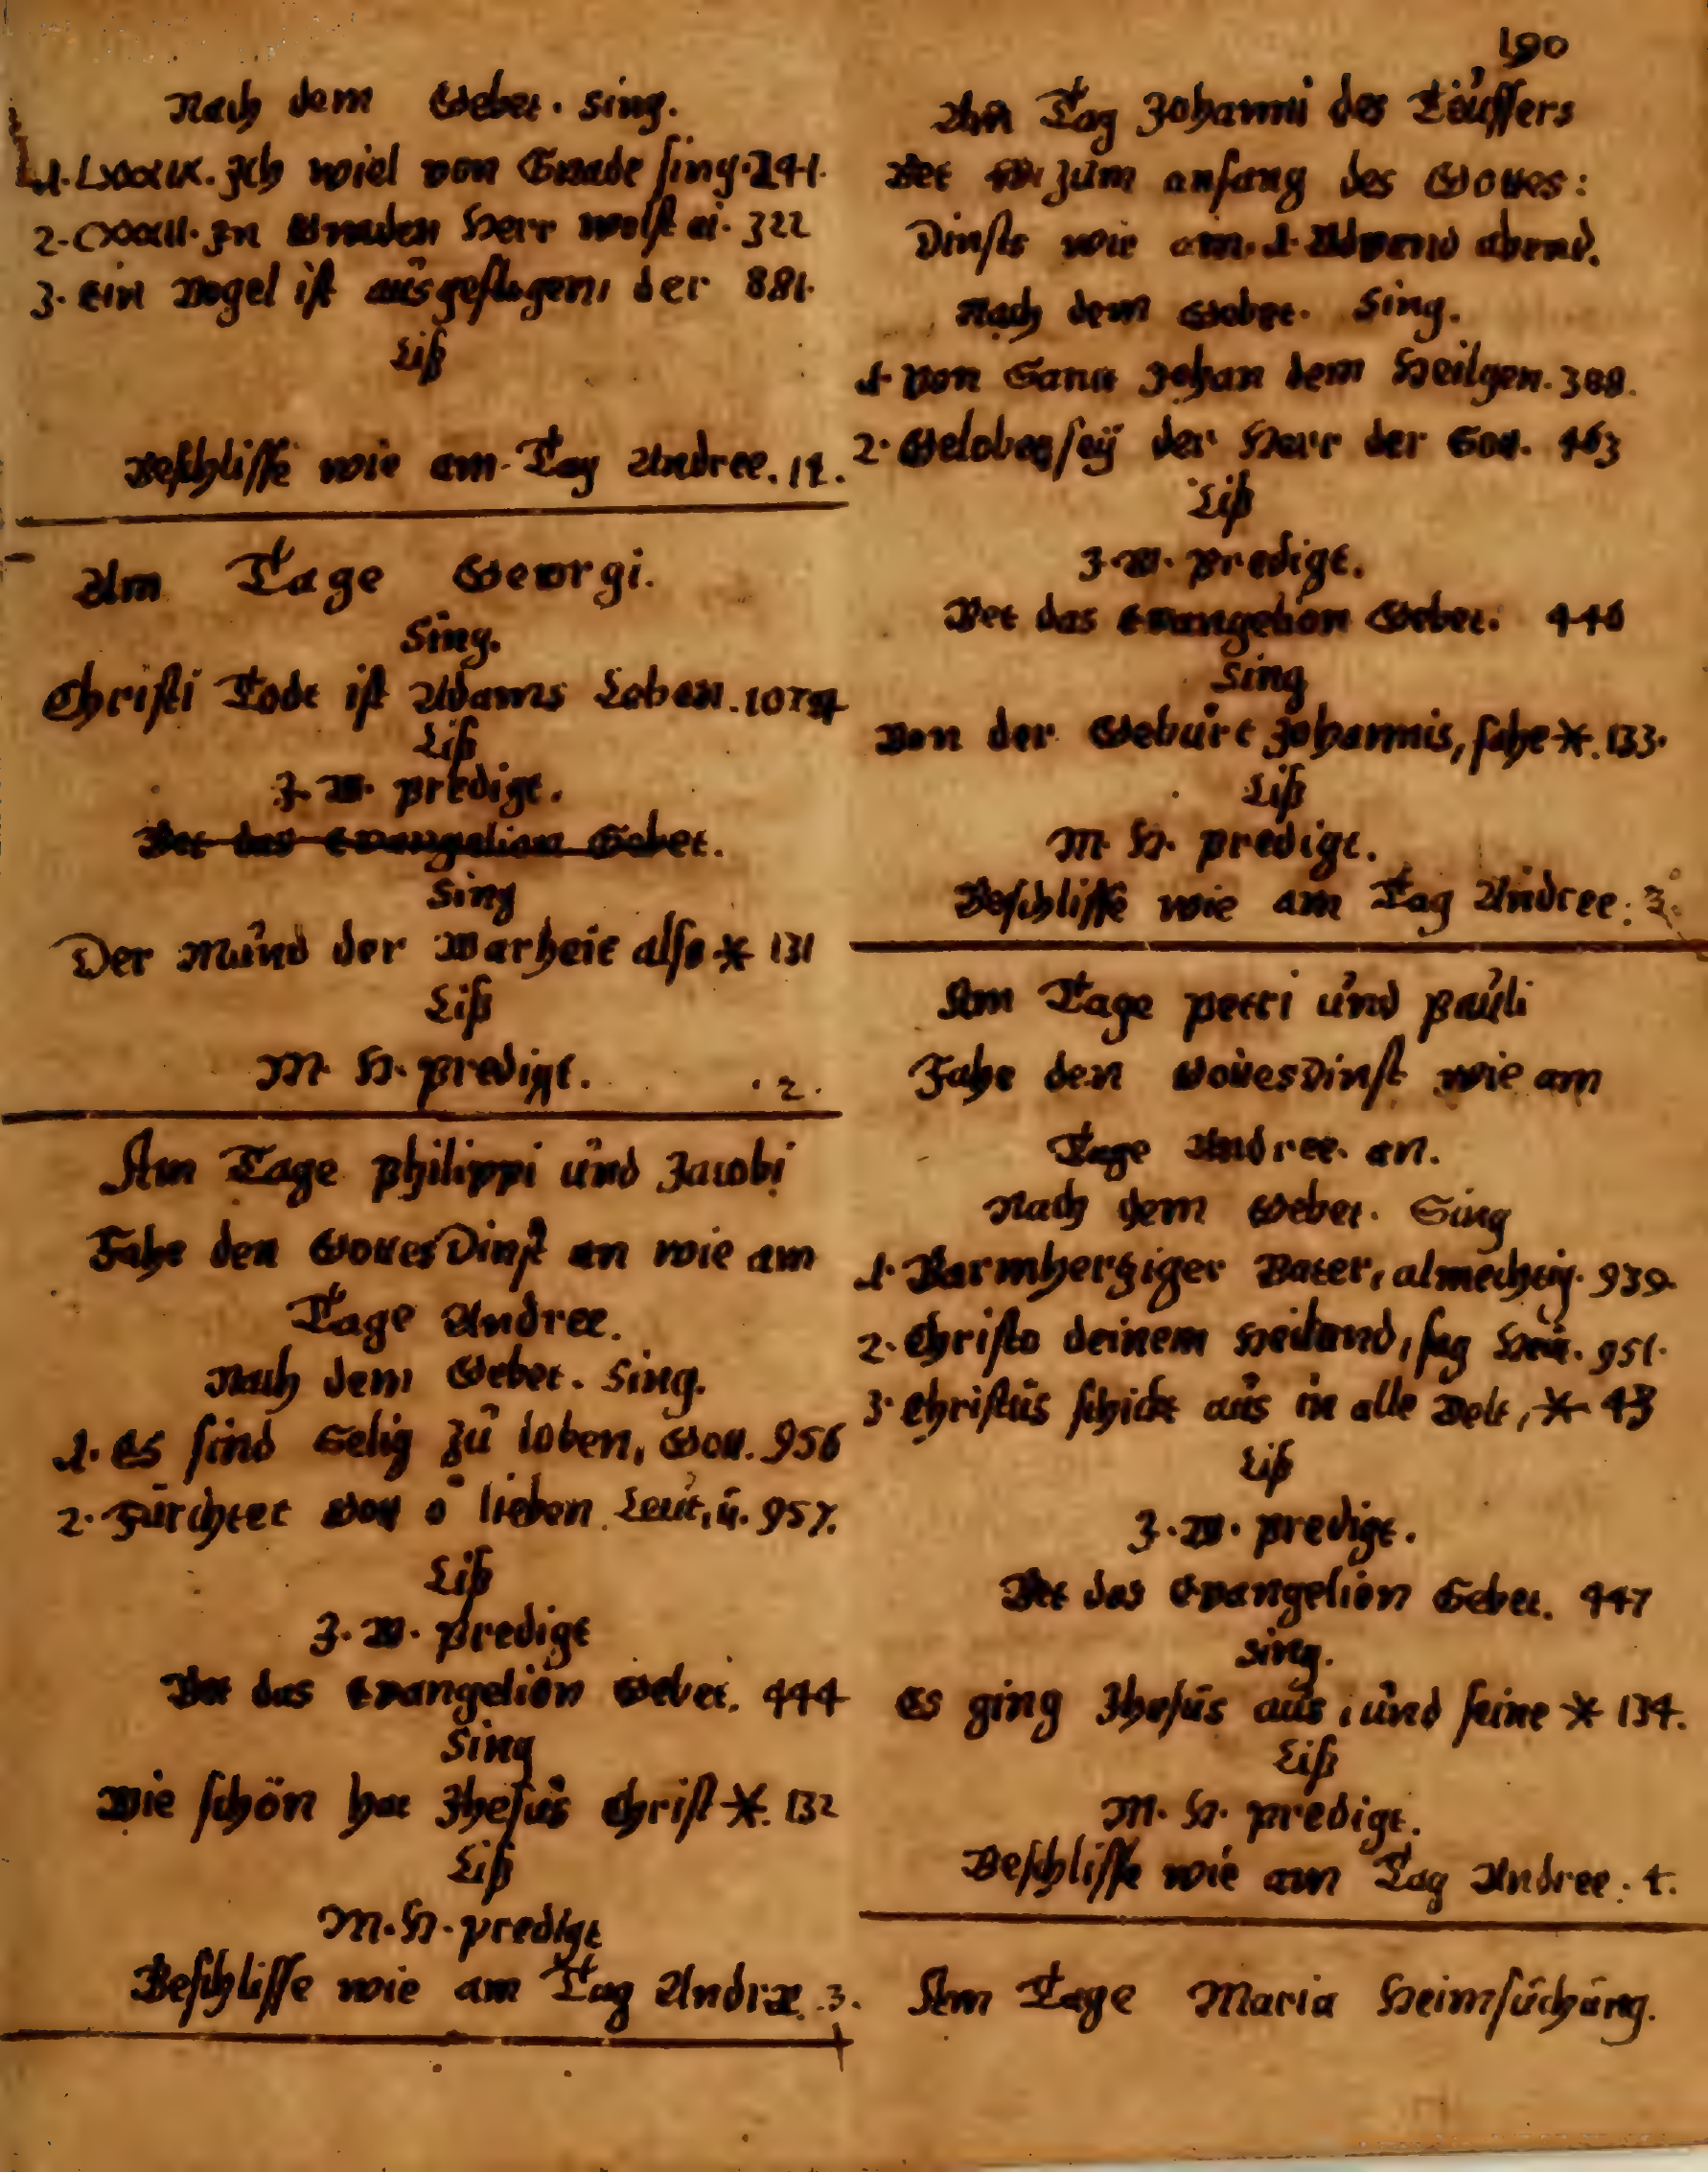 190
Nach dem Gebet. Sing.
1. LXXXIX. Ich wiel von Gnade sing. 241.
2. CXXXII. In Gnaden Herr wolst ei. 322
3. Ein Vogel ist ausgeflogen, der 881.
Liß
Beschlisse wie am Tag Andree. 12.
Am Tage Georgi.
Sing.
Christi Todt ist Adams Leben.
Liß
Z. W. predigt.
Bet das Evangelion Gebet.
Sing
Der Mund der Warheit also * 131
Liß
M. H. predigt. 2.
Am Tage Philippi und Jacobi
Fahe den GottesDinst an wie am
Tage Andree.
Nach dem Gebet. Sing.
1. Es sind Selig zu loben, Gott. 956
2. Fürchtet Gott o lieben Leut, ü. 957.
Liß
Z. W. predigt
Bet das Evangelion Gebet. 444
Sing
Wie schön hat Ihesus Christ *. 132
Liß
M. H. predigt
Beschlisse wie am Tag Andræ. 3.
Am Tag Johanni des Teuffers
Bet zum anfang des Gottes:
Dinsts wie am 1. Advend abend.
Nach dem Gebet. Sing.
1. Von Sanct Johan dem Heilgen. 388.
2. Gelobet seÿ der Herr der Gott. 463
Liß
Z. W. predigt.
Bet das Evangelion Gebet. 446
Sing
Von der Geburt Johannis, sahe *. 133.
Liß
M. H. predigt.
Beschlisse wie am Tag Andree. 3.
Am Tage Petri und Pauli
Fahe den GottesDinst wie am
Tage Andree an.
Nach dem Gebet. Sing
1. Barmhertziger Vater, almechtig. 939.
2. Christo deinem Heiland, sag 951.
3. Christus schickt aus in alle Welt, * 43
Liß
Z. W. predigt.
Bet das Evangelion Gebet. 447
Sing.
Es ging Ihesus aus, und seine * 134.
Liß
M. H. predigt.
Beschlisse wie am Tag Andree. 4.
Am Tage Maria Heimsuchung.